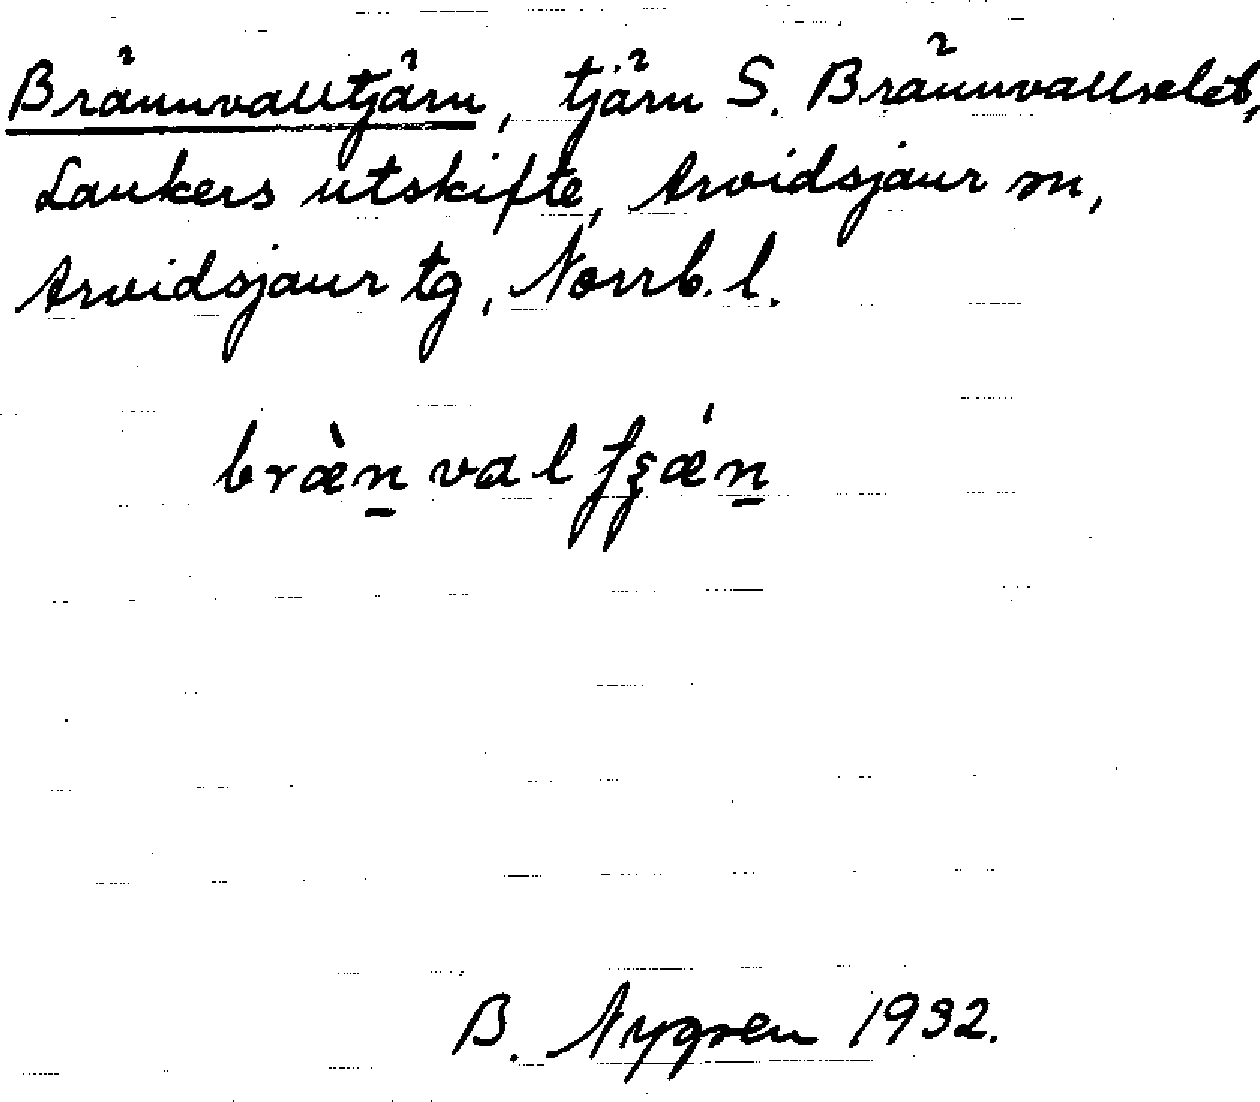 Brännvalltjärn, tjärn S. Brännvallselet,
Laukers utskifte, Arvidsjaur sn,
Arvidsjaur tg, Norrb. l.
bræ̀n̲val
B. Nygren 1932.